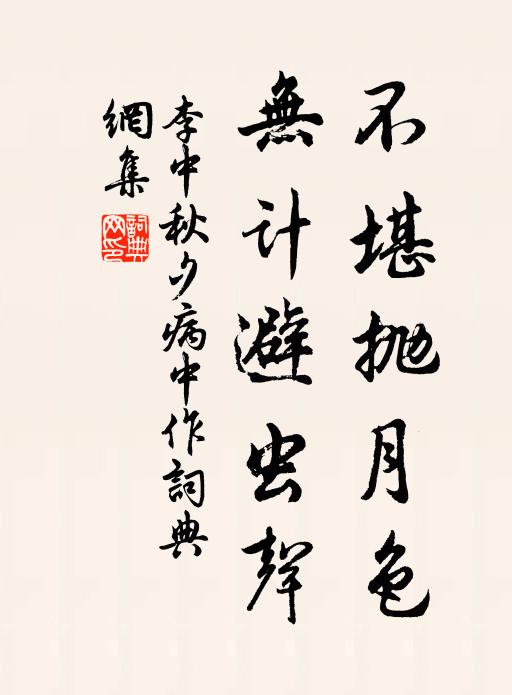 不堪抛月色
無計避虫聲
李中秋夕病中作詞典
網集
詞典網印